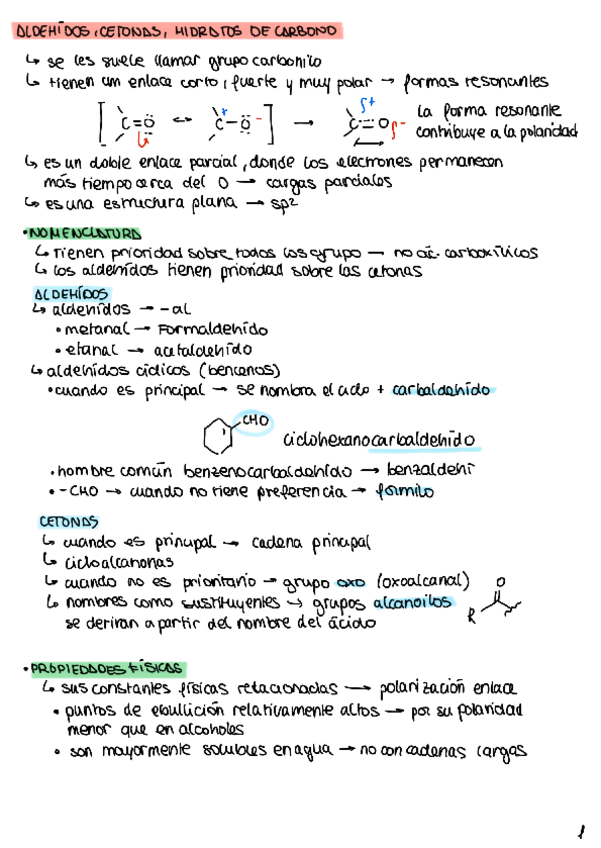 ALDEHÍDOS, CETONAS, HIDRATOS DE CARBONO
↳ se les suele llamar grupo carbonilo
↳ tienen un enlace corto, fuerte y muy polar → formas resonantes
C=O ↔ C-O → C=O δ+ δ- la forma resonante
contribuye a la polaridad
↳ es un doble enlace parcial, donde los electrones permanecen
más tiempo cerca del O → cargas parciales
↳ es una estructura plana → sp²
• NOMENCLATURA
↳ Tienen prioridad sobre todos los grupo — no ác. carboxílicos
↳ los aldehídos tienen prioridad sobre las cetonas
ALDEHÍDOS
↳ aldehídos → -al
• metanal → Formaldehído
• etanal → acetaldehído
↳ aldehídos cíclicos (bencenos)
• cuando es principal → se nombra el ciclo + carbaldehído
CHO
ciclohexanocarbaldehído
• nombre común benzenocarbaldehído → benzaldehí
• -CHO → cuando no tiene preferencia → formilo
CETONAS
↳ cuando es principal → cadena principal
↳ cicloalcanonas
↳ cuando no es prioritario → grupo oxo (oxoalcanal)
↳ nombres como sustituyentes → grupos alcanoilos
R O
se derivan a partir del nombre del ácido
• PROPIEDADES FÍSICAS
↳ sus constantes físicas relacionadas → polarización enlace
• puntos de ebullición relativamente altos → por su polaridad
menor que en alcoholes
• son mayormente solubles en agua → no con cadenas largas
1